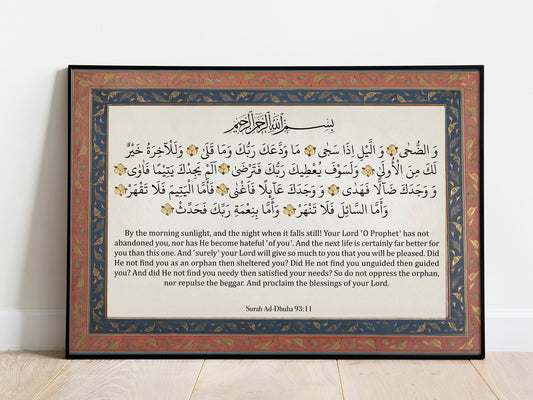 بِسْمِ اللَّهِ الرَّحْمَٰنِ الرَّحِيمِ
وَ الضُّحٰى وَ الَّيْلِ اِذَا سَجٰى مَا وَدَّعَكَ رَبُّكَ وَمَا قَلٰى وَلَلْاٰخِرَةُ خَيْرٌ
لَّكَ مِنَ الْاُولٰى وَلَسَوْفَ يُعْطِيكَ رَبُّكَ فَتَرْضٰى اَلَمْ يَجِدْكَ يَتِيْمًا فَاٰوٰى
وَ وَجَدَكَ ضَآلًّا فَهَدٰى وَ وَجَدَكَ عَآىِٕلًا فَاَغْنٰى فَاَمَّا الْيَتِيْمَ فَلَا تَقْهَرْ
وَ اَمَّا السَّآىِٕلَ فَلَا تَنْهَرْ وَ اَمَّا بِنِعْمَةِ رَبِّكَ فَحَدِّثْ
By the morning sunlight, and the night when it falls still! Your Lord ˹O Prophet˺ has not
abandoned you, nor has He become hateful ˹of you˺. And the next life is certainly far better for
you than this one. And ˹surely˺ your Lord will give so much to you that you will be pleased. Did
He not find you as an orphan then sheltered you? Did He not find you unguided then guided
you? And did He not find you needy then satisfied your needs? So do not oppress the orphan,
nor repulse the beggar. And proclaim the blessings of your Lord.
Surah Ad-Dhuha 93:11